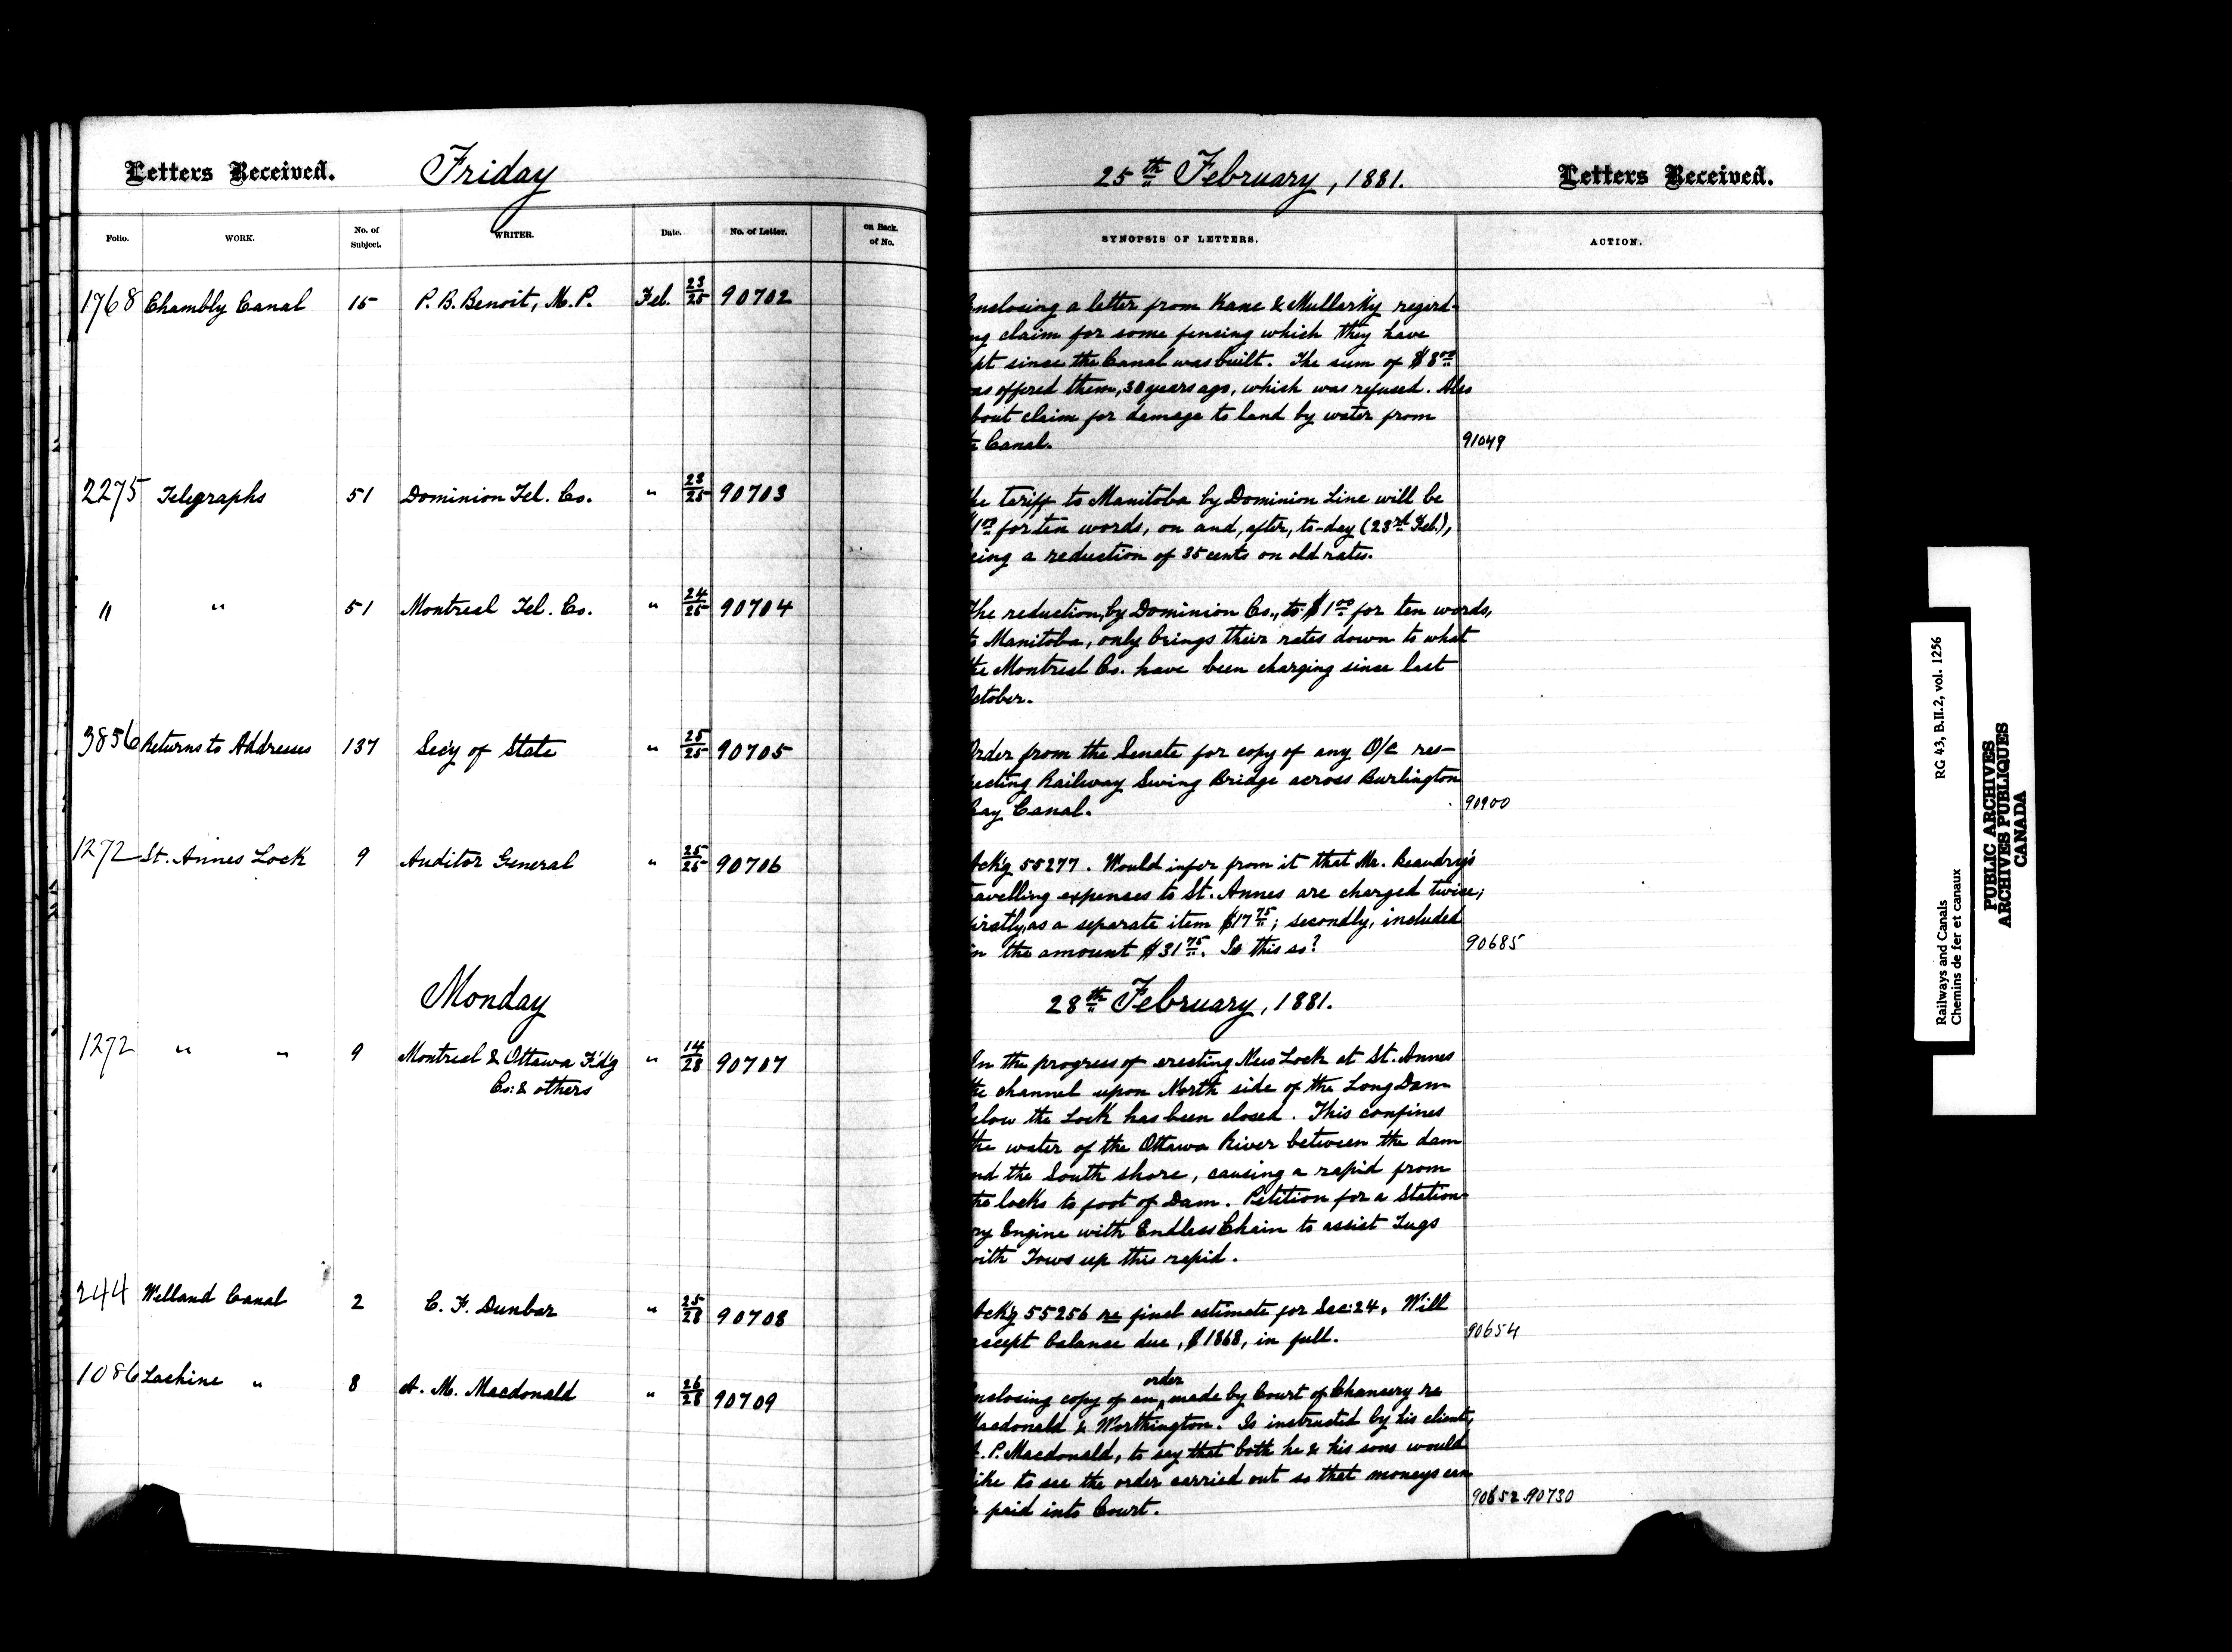 Letters Received. Friday
Folio. WORK. No. of Subject. WRITER. Date. No. of Letter. on Back. of No.
1768 Chambly Canal 15 P. B. Benoit, M. P. Feb. 23/25 90702
2275 Telegraphs 51 Dominion Tel. Co. " 23/25 90703
" " 51 Montreal Tel. Co. " 24/25 90704
3856 Returns to Addresses 137 Sec'y of State " 25/25 90705
1272 St. Annes Lock 9 Auditor General " 25/25 90706
Monday
1272 " " 9 Montreal & Ottawa F'd'g " 14/28 90707
Co: & others
244 Welland Canal 2 C. F. Dunbar " 25/28 90708
1086 Lachine " 8 A. M. Macdonald " 26/28 90709
25th February, 1881. Letters Received.
SYNOPSIS OF LETTERS. ACTION.
nclosing a letter from Kane & Mullarky regard-
ng claim for some fencing which they have
pt since the Canal was built. The sum of $8.00
as offered them, 30 years ago, which was refused. Also
bout claim for damage to land by water from
Canal. 91049
he tariff to Manitoba by Dominion Line will be
$1.00 for ten words, on and, after, to-day (23rd Feb.),
eing a reduction of 35 cents on old rates.
The reduction, by Dominion Co., to $1.00 for ten words,
to Manitoba, only brings their rates down to what
the Montreal Co. have been charging since last
October.
Order from the Senate for copy of any O/C res-
ecting Railway Swing Bridge across Burlington
Bay Canal. 90900
Ack'g 55277. Would infer from it that Mr. Beaudry's
ravelling expenses to St. Annes are charged twice;
irstly, as a separate item $17.75; secondly, included
in the amount $31.75. Is this so? 90685
28th February, 1881.
In the progress of erecting New Lock at St. Annes
the channel upon North side of the Long Dam
elow the Lock has been closed. This confines
the water of the Ottawa River between the dam
nd the South shore, causing a rapid from
the locks to foot of Dam. Petition for a Station-
ry Engine with Endless Chain to assist Tugs
with Tows up this rapid.
Ack'g 55256 re final estimate for Sec: 24. Will
accept balance due, $1868, in full. 90654
order
nclosing copy of an ^ made by Court of Chancery re
Macdonald & Worthington. Is instructed by his client,
A. P. Macdonald, to say that both he & his sons would
like to see the order carried out so that moneys can
paid into Court. 90652.90730
Railways and Canals RG 43, B.II.2, vol. 1256
Chemins de fer et canaux
PUBLIC ARCHIVES
ARCHIVES PUBLIQUES
CANADA